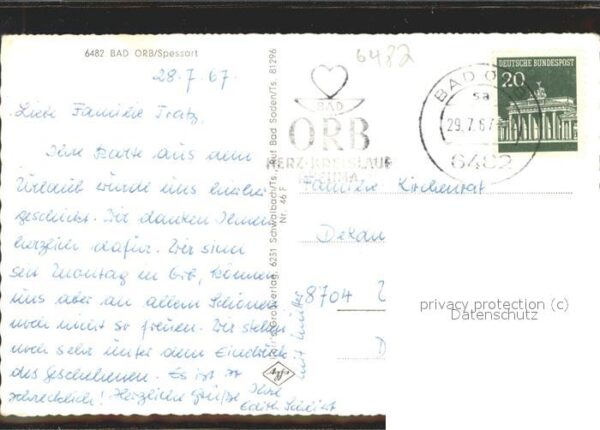 6482 BAD ORB/Spessart
28.7.67.
Liebe Familie Tratz,
Ihre Karte aus dem
Urlaub wurde uns hierher
geschickt. Wir danken Ihnen
herzlich dafür. Wir sind
seit Montag in Orb, können
uns aber an allem Schönen
noch nicht so freuen. Wir stehen
noch sehr unter dem Eindruck
des Geschehenen. Es ist zu
schrecklich! Herzliche Grüße Ihre
Edith
mit
Großverlag, 6231 Schwalbach/Ts., Ruf Bad Soden/Ts. 81296
Nr. 46 F
6482
BAD
ORB
HERZ-KREISLAUF
RHEUMA
BAD O
sa
29.7.67
6482
DEUTSCHE BUNDESPOST
20
Familie Kirchenrat
Dekan
8704
D
privacy protection (c)
Datenschutz